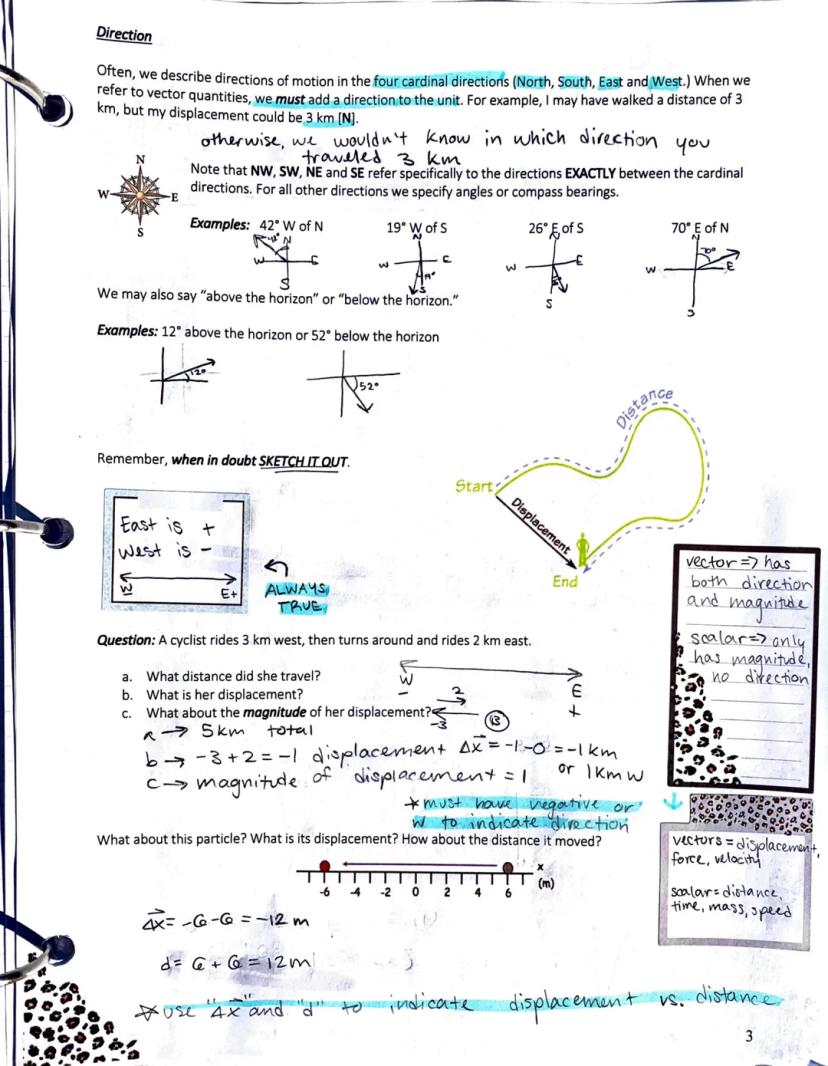 Direction
Often, we describe directions of motion in the four cardinal directions (North, South, East and West.) When we
refer to vector quantities, we must add a direction to the unit. For example, I may have walked a distance of 3
km, but my displacement could be 3 km [N].
otherwise, we wouldn't know in which direction you
traveled 3 km
N
W
E
S
Note that NW, SW, NE and SE refer specifically to the directions EXACTLY between the cardinal
directions. For all other directions we specify angles or compass bearings.
Examples: 42° W of N
19° W of S
26° E of S
70° E of N
42° N
W E
S
N
W E
19°
S
N
W E
S
N
70°
W E
S
We may also say "above the horizon" or "below the horizon."
Examples: 12° above the horizon or 52° below the horizon
12°
52°
Distance
Remember, when in doubt SKETCH IT OUT.
Start
Displacement
End
East is +
West is -
W E+
ALWAYS
TRUE
vector => has
both direction
and magnitude
scalar => only
has magnitude,
no direction
Question: A cyclist rides 3 km west, then turns around and rides 2 km east.
a. What distance did she travel?
b. What is her displacement?
c. What about the magnitude of her displacement?
W E
- +
2
-3
B
a → 5 km total
b → -3 + 2 = -1 displacement Δx = -1 - 0 = -1 km
or 1 km W
c → magnitude of displacement = 1
* must have negative or
W to indicate direction
What about this particle? What is its displacement? How about the distance it moved?
x
-6 -4 -2 0 2 4 6 (m)
vectors = displacement,
force, velocity
scalar = distance,
time, mass, speed
Δx = -6 - 6 = -12 m
d = 6 + 6 = 12 m
* use "Δx" and "d" to indicate displacement vs. distance
3